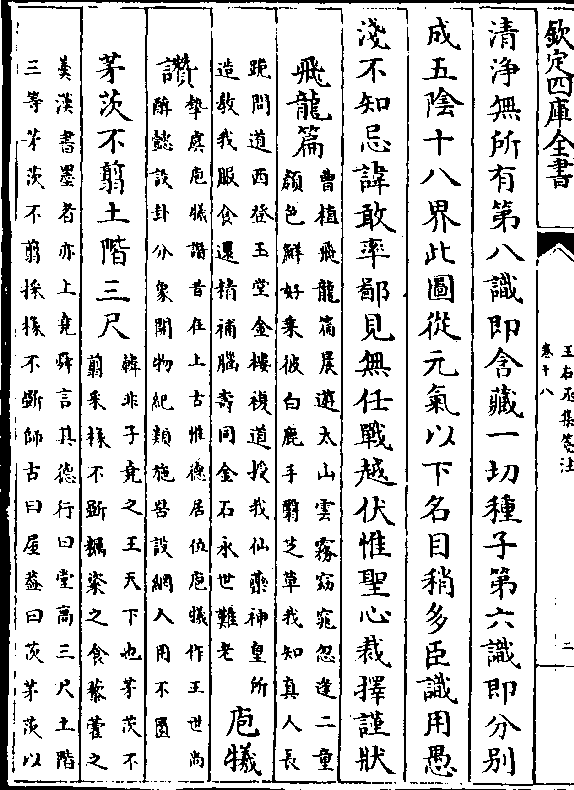 欽定四庫全書
王右丞集箋注
卷十八
二
清淨無所有第八識即含藏一切種子第六識即分別
成五陰十八界此圖從元氣以下名目稍多臣識用愚
淺不知忌諱敢率鄙見無任戰越伏惟聖心裁擇謹狀
飛龍篇
曹植飛龍篇晨遊太山雲霧窈窕忽逢二童
顔色鮮好乘彼白鹿手翳芝草我知真人長
跪問道西登玉堂金樓複道授我仙藥神皇所
造教我服食還精補腦壽同金石永世難老
庖犧
讚
摯虞庖犧讚昔在上古惟德居位庖犧作王世尚
醇懿設卦分象開物紀類施罟設網人用不匱
茅茨不翦土階三尺
韓非子堯之王天下也茅茨不
翦采椽不斲糲粢之食藜藿之
羮漢書墨者亦上堯舜言其德行曰堂高三尺土階
三等茅茨不翦採椽不斲師古曰屋葢曰茨茅茨以